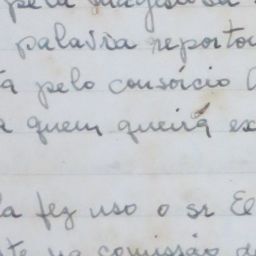 pela
palavra reporto
pelo consórcio
a quem queira ex
la fez uso o sr El
te na comissão d